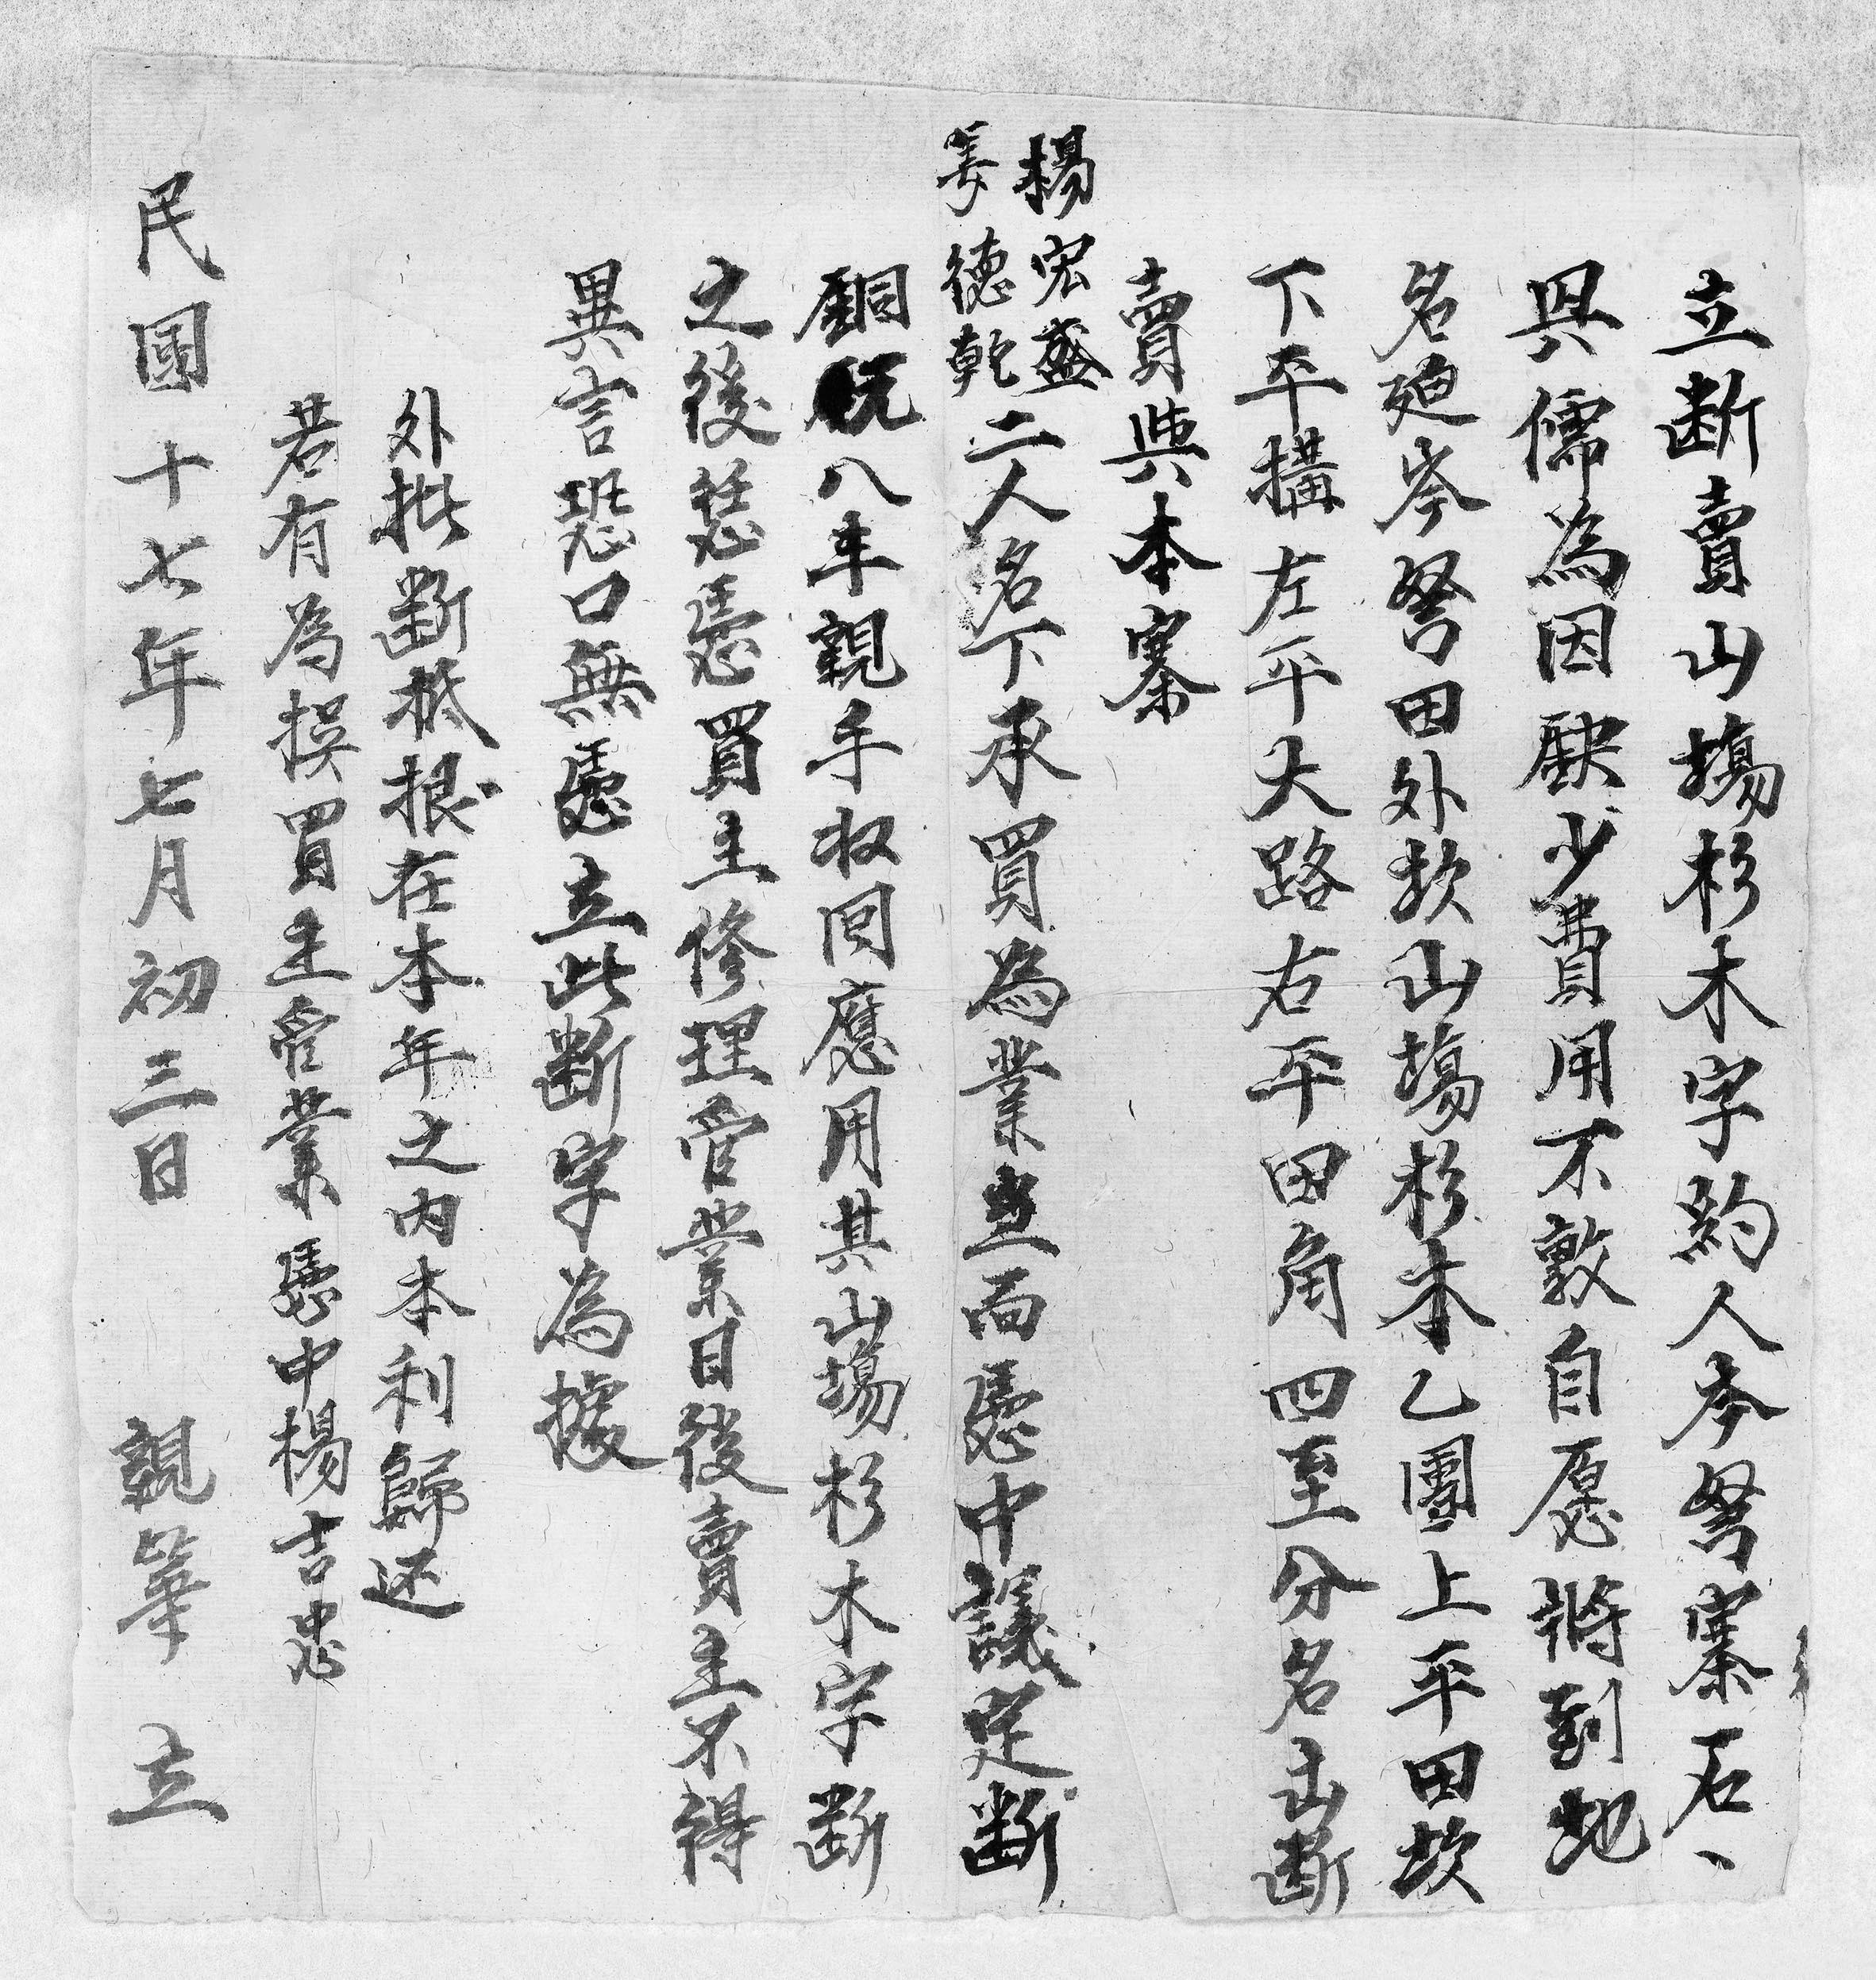 立断賣山塲杉木字約人岑努寨石、
具儒為因缺少費用不敷自愿將到地
名廻岑努田外坎山塲杉木乙團上平田坎
下平構左平大路右平田角四至分名出断
賣與本寨
楊宏盛
姜德乾二人名下承買為業當面憑中議定断
銅 八年親手收囘應用其山塲杉木字断
之後恁憑買主修理管業日後賣主不得
異言恐口無憑立此断字為據
外批断抵根在本年之内本利歸还
若有為悞買主管業 憑中楊吉忠
民國十七年七月初三日 親筆 立